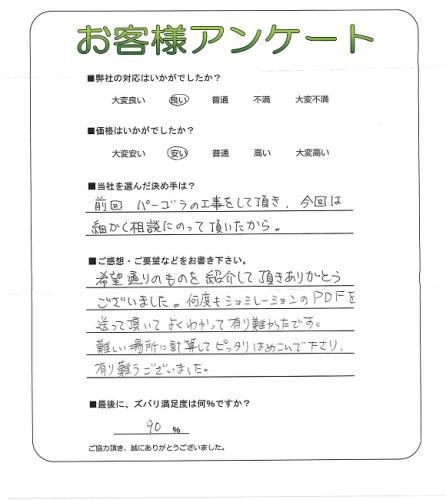 お客様アンケート
■弊社の対応はいかがでしたか？
大変良い　良い　普通　不満　大変不満
■価格はいかがでしたか？
大変安い　安い　普通　高い　大変高い
■当社を選んだ決め手は？
前回 パーゴラの工事をして頂き、今回は
細かく相談にのって頂いたから。
■ご感想・ご要望などをお書き下さい。
希望通りのものを紹介して頂きありがとう
ございました。何度もショミレーションのPDFを
送って頂いて よくわかって有り難かったです。
難しい場所に計算してピッタリはめこんで下さり、
有り難うございました。
■最後に、ズバリ満足度は何％ですか？
90 ％
ご協力頂き、誠にありがとうございました。